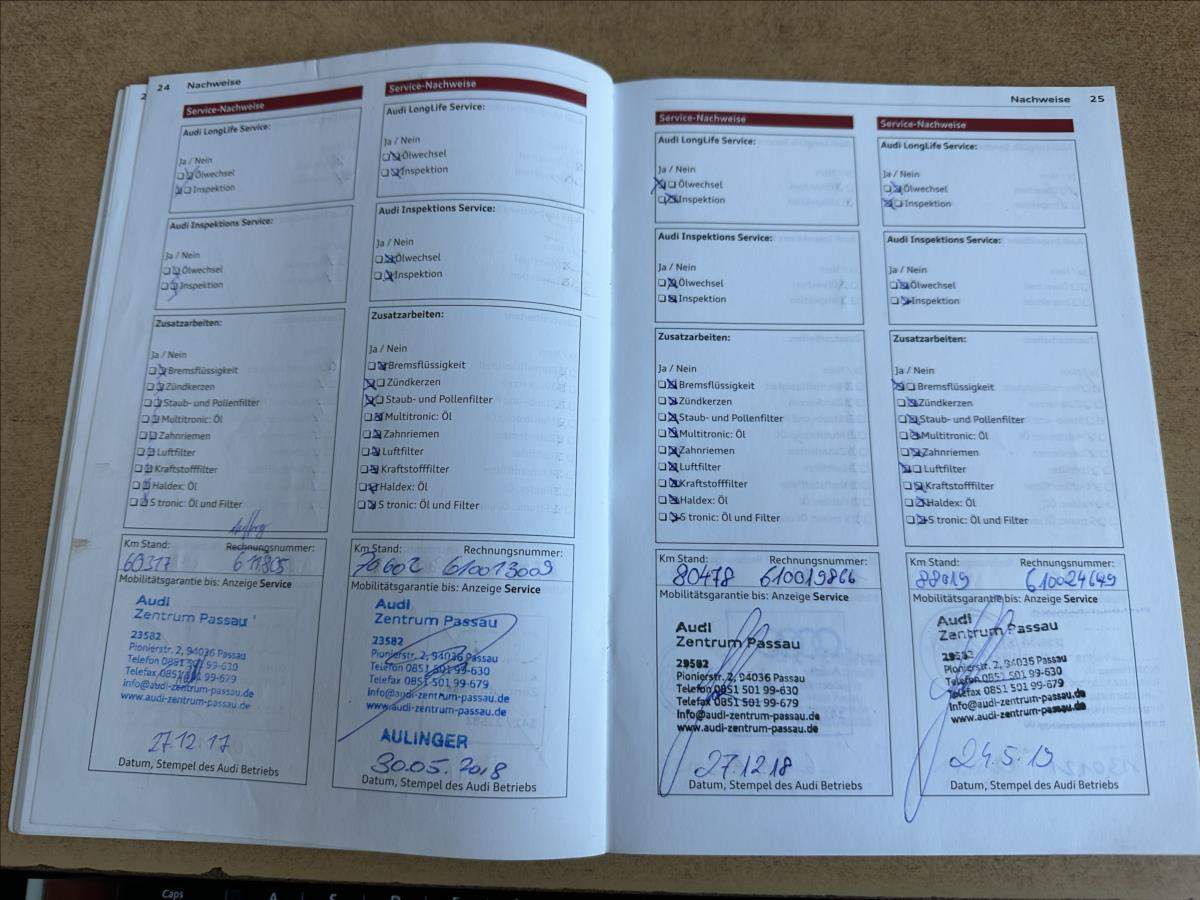 24 Nachweise
Service-Nachweise
Audi LongLife Service:
Ja / Nein
Ölwechsel
Inspektion
Audi Inspektions Service:
Ja / Nein
Ölwechsel
Inspektion
Zusatzarbeiten:
Ja / Nein
Bremsflüssigkeit
Zündkerzen
Staub- und Pollenfilter
Multitronic: Öl
Zahnriemen
Luftfilter
Kraftstofffilter
Haldex: Öl
S tronic: Öl und Filter
Km Stand: Rechnungsnummer:
60317 611805
Mobilitätsgarantie bis: Anzeige Service
Audi
Zentrum Passau
23582
Pionierstr. 2, 94036 Passau
Telefon 0851 501 99-630
Telefax 0851 501 99-679
info@audi-zentrum-passau.de
www.audi-zentrum-passau.de
27.12.17
Datum, Stempel des Audi Betriebs
Service-Nachweise
Audi LongLife Service:
Ja / Nein
Ölwechsel
Inspektion
Audi Inspektions Service:
Ja / Nein
Ölwechsel
Inspektion
Zusatzarbeiten:
Ja / Nein
Bremsflüssigkeit
Zündkerzen
Staub- und Pollenfilter
Multitronic: Öl
Zahnriemen
Luftfilter
Kraftstofffilter
Haldex: Öl
S tronic: Öl und Filter
Km Stand: Rechnungsnummer:
70602 610013009
Mobilitätsgarantie bis: Anzeige Service
Audi
Zentrum Passau
23582
Pionierstr. 2, 94036 Passau
Telefon 0851 501 99-630
Telefax 0851 501 99-679
info@audi-zentrum-passau.de
www.audi-zentrum-passau.de
AULINGER
30.05.2018
Datum, Stempel des Audi Betriebs
Nachweise 25
Service-Nachweise
Audi LongLife Service:
Ja / Nein
Ölwechsel
Inspektion
Audi Inspektions Service:
Ja / Nein
Ölwechsel
Inspektion
Zusatzarbeiten:
Ja / Nein
Bremsflüssigkeit
Zündkerzen
Staub- und Pollenfilter
Multitronic: Öl
Zahnriemen
Luftfilter
Kraftstofffilter
Haldex: Öl
S tronic: Öl und Filter
Km Stand: Rechnungsnummer:
80478 610019866
Mobilitätsgarantie bis: Anzeige Service
Audi
Zentrum Passau
29582
Pionierstr. 2, 94036 Passau
Telefon 0851 501 99-630
Telefax 0851 501 99-679
info@audi-zentrum-passau.de
www.audi-zentrum-passau.de
27.12.18
Datum, Stempel des Audi Betriebs
Service-Nachweise
Audi LongLife Service:
Ja / Nein
Ölwechsel
Inspektion
Audi Inspektions Service:
Ja / Nein
Ölwechsel
Inspektion
Zusatzarbeiten:
Ja / Nein
Bremsflüssigkeit
Zündkerzen
Staub- und Pollenfilter
Multitronic: Öl
Zahnriemen
Luftfilter
Kraftstofffilter
Haldex: Öl
S tronic: Öl und Filter
Km Stand: Rechnungsnummer:
88019 610024649
Mobilitätsgarantie bis: Anzeige Service
Audi
Zentrum Passau
29582
Pionierstr. 2, 94036 Passau
Telefon 0851 501 99-630
Telefax 0851 501 99-679
Info@audi-zentrum-passau.de
www.audi-zentrum-passau.de
24.5.19
Datum, Stempel des Audi Betriebs
Caps